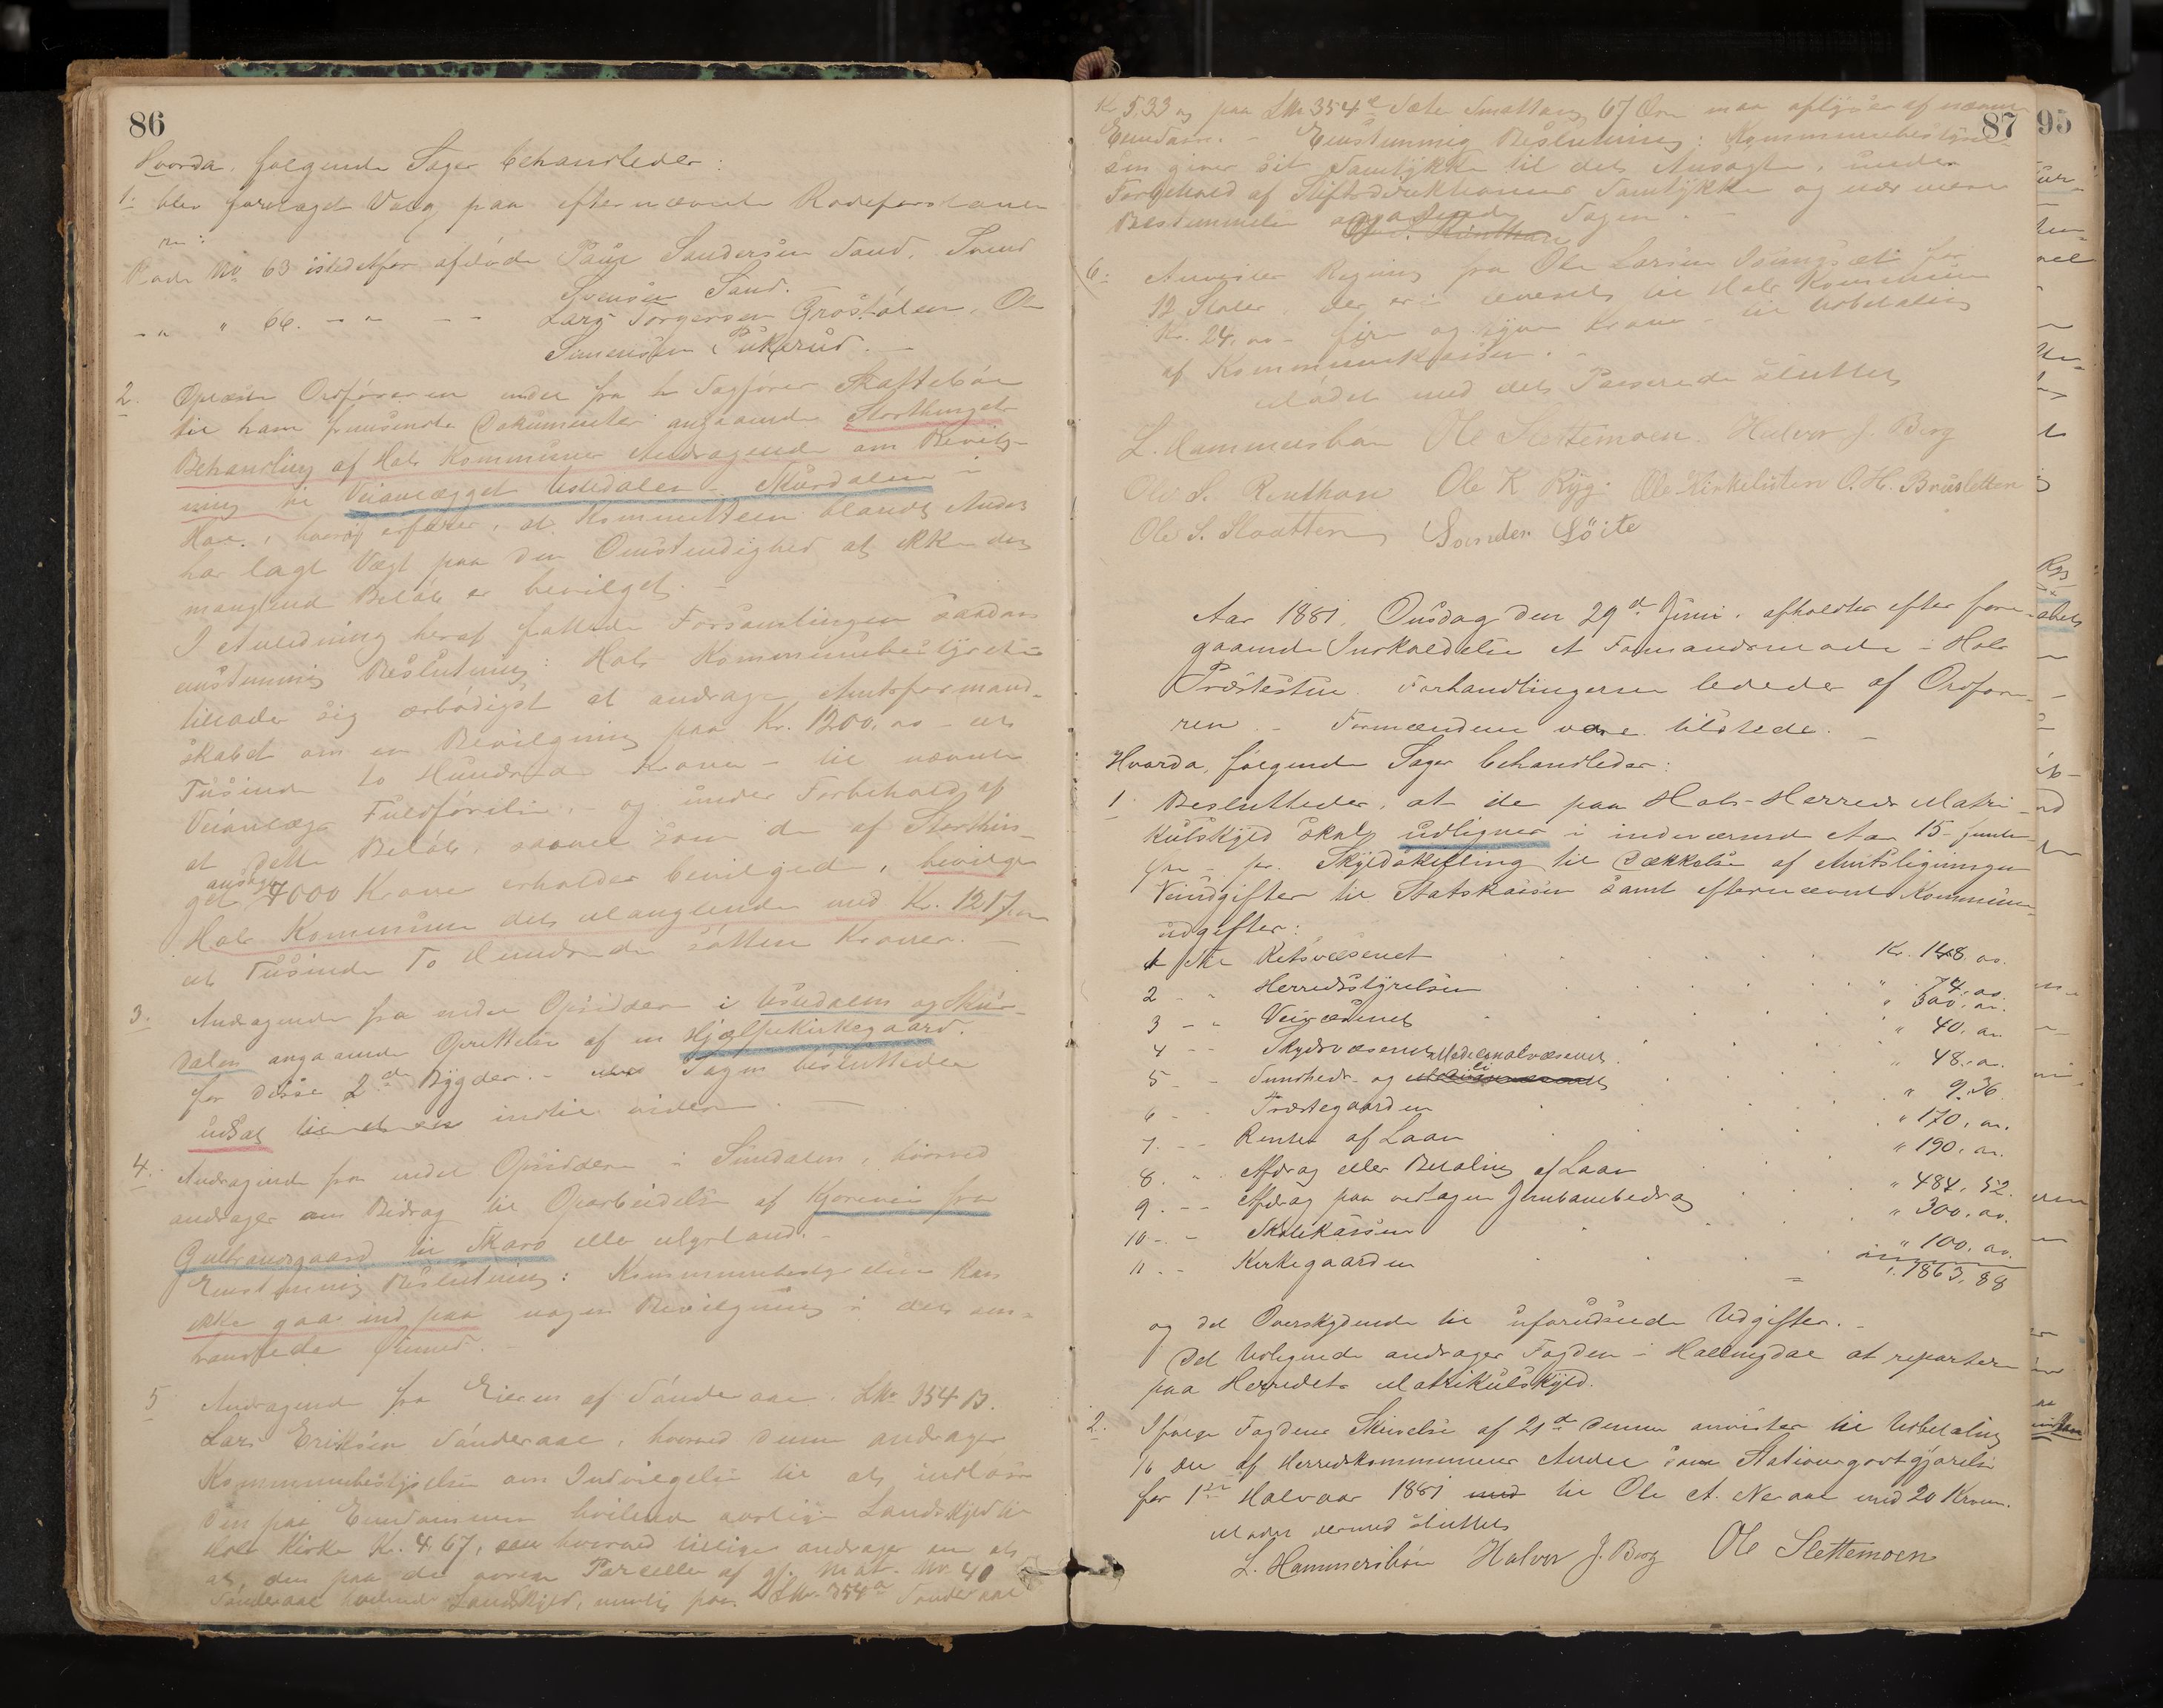 86
Hvorda, følgende Sager behandledes:
1. blev foretaget Valg paa efternævnte Rodeforstander
ne:
Rode No 63 istedetfor afdøde Paul Sandersen Sand, Svend
Svensen Sand.
- " - " 66. - " - - - Lars Torgersen Grøstølen, Ole
Simensen
2. Oplæste Ordføreren endel fra hr Sagfører Skattebøe
til ham fremsendte Dokumenter angaaende Storthingets
Behandling af Hols Kommunes Andragende om Bevilg-
ning til Veianlægget Ustedalen - Skurdalen i
Hol, hvoraf erfares, at Kommitteen blandt Andet
har lagt Vægt paa den Omstendighed at ikke det
manglende Beløb er bevilget. -
I Anledning heraf fattede Forsamlingen saadan
enstemmig Beslutning: Hols Kommunebestyrelse
tillader sig ærbødigst at andrage Amtsformand-
skabet om en Bevilgning paa Kr. 1200,00 - et
Tusinde to Hundrede Kroner - til nævnte
Veianlægs Fuldførelse, - og under Forbehold af
at dette Beløb, saavel som de af Storthin-
get ansøgte 7000 Kroner erholdes bevilgede, bevilger
Hols Kommune det Manglende med Kr. 1217,00
et Tusinde To Hundrede sotten Kroner. -
3. Andragende fra endel Opsiddere i Ustedalen og Skur-
dalen angaaende Oprettelse af en Hjælpekirkegaard.
for disse 2de Bygder. - Sagen besluttedes
udsat indtil videre. -
4. Andragende fra endel Opsiddere i Sundalen, hvorved
andrages om Bidrag til Oparbeidelse af Kjørevei fra
Gulbrandsgaard til Skaro eller Myrland. -
Enstemmig Beslutning: Kommunebestyrelsen kan
ikke gaa ind paa nogen Bevilgning i det om-
handlede Øiemed. -
5 Andragende fra Eieren af Sønderaal LNo 354 B.
Lars Eriksen Sønderaal, hvorved denne andrager
Kommunebestyrelsen om Indvilgelse til at indløse
den paa Eiendommen hvilende aarlige Landskyld til
Hols Kirke Kr. 4,67, hvorved tillige andrages om at
at den paa de øvrige Parceller af gl. Mat. No. 40
Sønderaal hvilende Landskyld, nemlig paa LNo. 354a Sønderaal
87
Kr 5,33 og paa LNo 354c Sæte Smatten 67 Øre maa aflyses af nævnte
Eiendom. - Enstemmig Beslutning: Kommunebestyrel-
sen giver sit Samtykke til det Ansøgte, under
Forbehold af Stiftsdirektionens Samtykke og nærmere
Bestemmelse angaaende Sagen. -
6. Anvistes Regning fra Ole Larsen for
12 Stoler, der er leveret til Hols Kommune
Kr. 24,00 - fire og tyve Kroner - til Udbetaling
af Kommunekassen. -
Mødet med det Passerede sluttet
L. Hammersbøen Ole Slettemoen Halvor J. Berg
Ole S. Renthon Ole K Ryg. Ole Kirkelieten O. H. Brusletten
Ole S. Slaatten Sander Löite
Aar 1881, Onsdag den 29de Juni, afholdtes efter fore-
gaaende Indkaldelse et Formandsmøde i Hols
Præstestue. Forhandlingerne lededes af Ordføre-
ren. - Formændene vare tilstede. -
Hvorda, følgende Sager behandledes:
1 Besluttedes, at der paa Hols-Herreds Matri-
kulskyld skal udlignes i indeværende Aar 15 - femten
Øre pr. Skyldskilling til Dækkelse af Amtsligningen
Veiudgifter til Statskassen samt efternævnte Kommune-
udgifter:
1 Til Retsvæsenet Kr. 148 00.
2 - " Herredsstyrelsen " 74,00.
3 - " Veivæsenet " 300,00.
4 - - Skydsvæsenet " 40,00
5 - - Sundheds- og Medicinalvæsenet " 48,00.
6 - - Præstegaarden " 9.36
7. - - Renter af Laan " 170,00.
8. - - Afdrag eller Betaling af Laan " 190,00.
9. - - Afdrag paa vedtagen Jernbanebidrag " 484,52.
10 - - Skolekassen " 300,00.
11 - - Kirkegaarden " 100,00.
= 1863,88
og det Overskydende til uforudseede Udgifter. -
Det Udlignede andrages Fogden i Hallingdal at repartere
paa Herredets Matrikulskyld.
2. Ifølge Fogdens Skrivelse af 21de dennes anvistes til Udbetaling
16 Dele af Herredskommunens Andel som Stationsgodtgjørelse
for 1ste Halvaar 1881 til Ole A. Neraal med 20 Kroner.
Mødet dermed sluttet
L. Hammersbøen Halvor J. Berg Ole Slettemoen
95